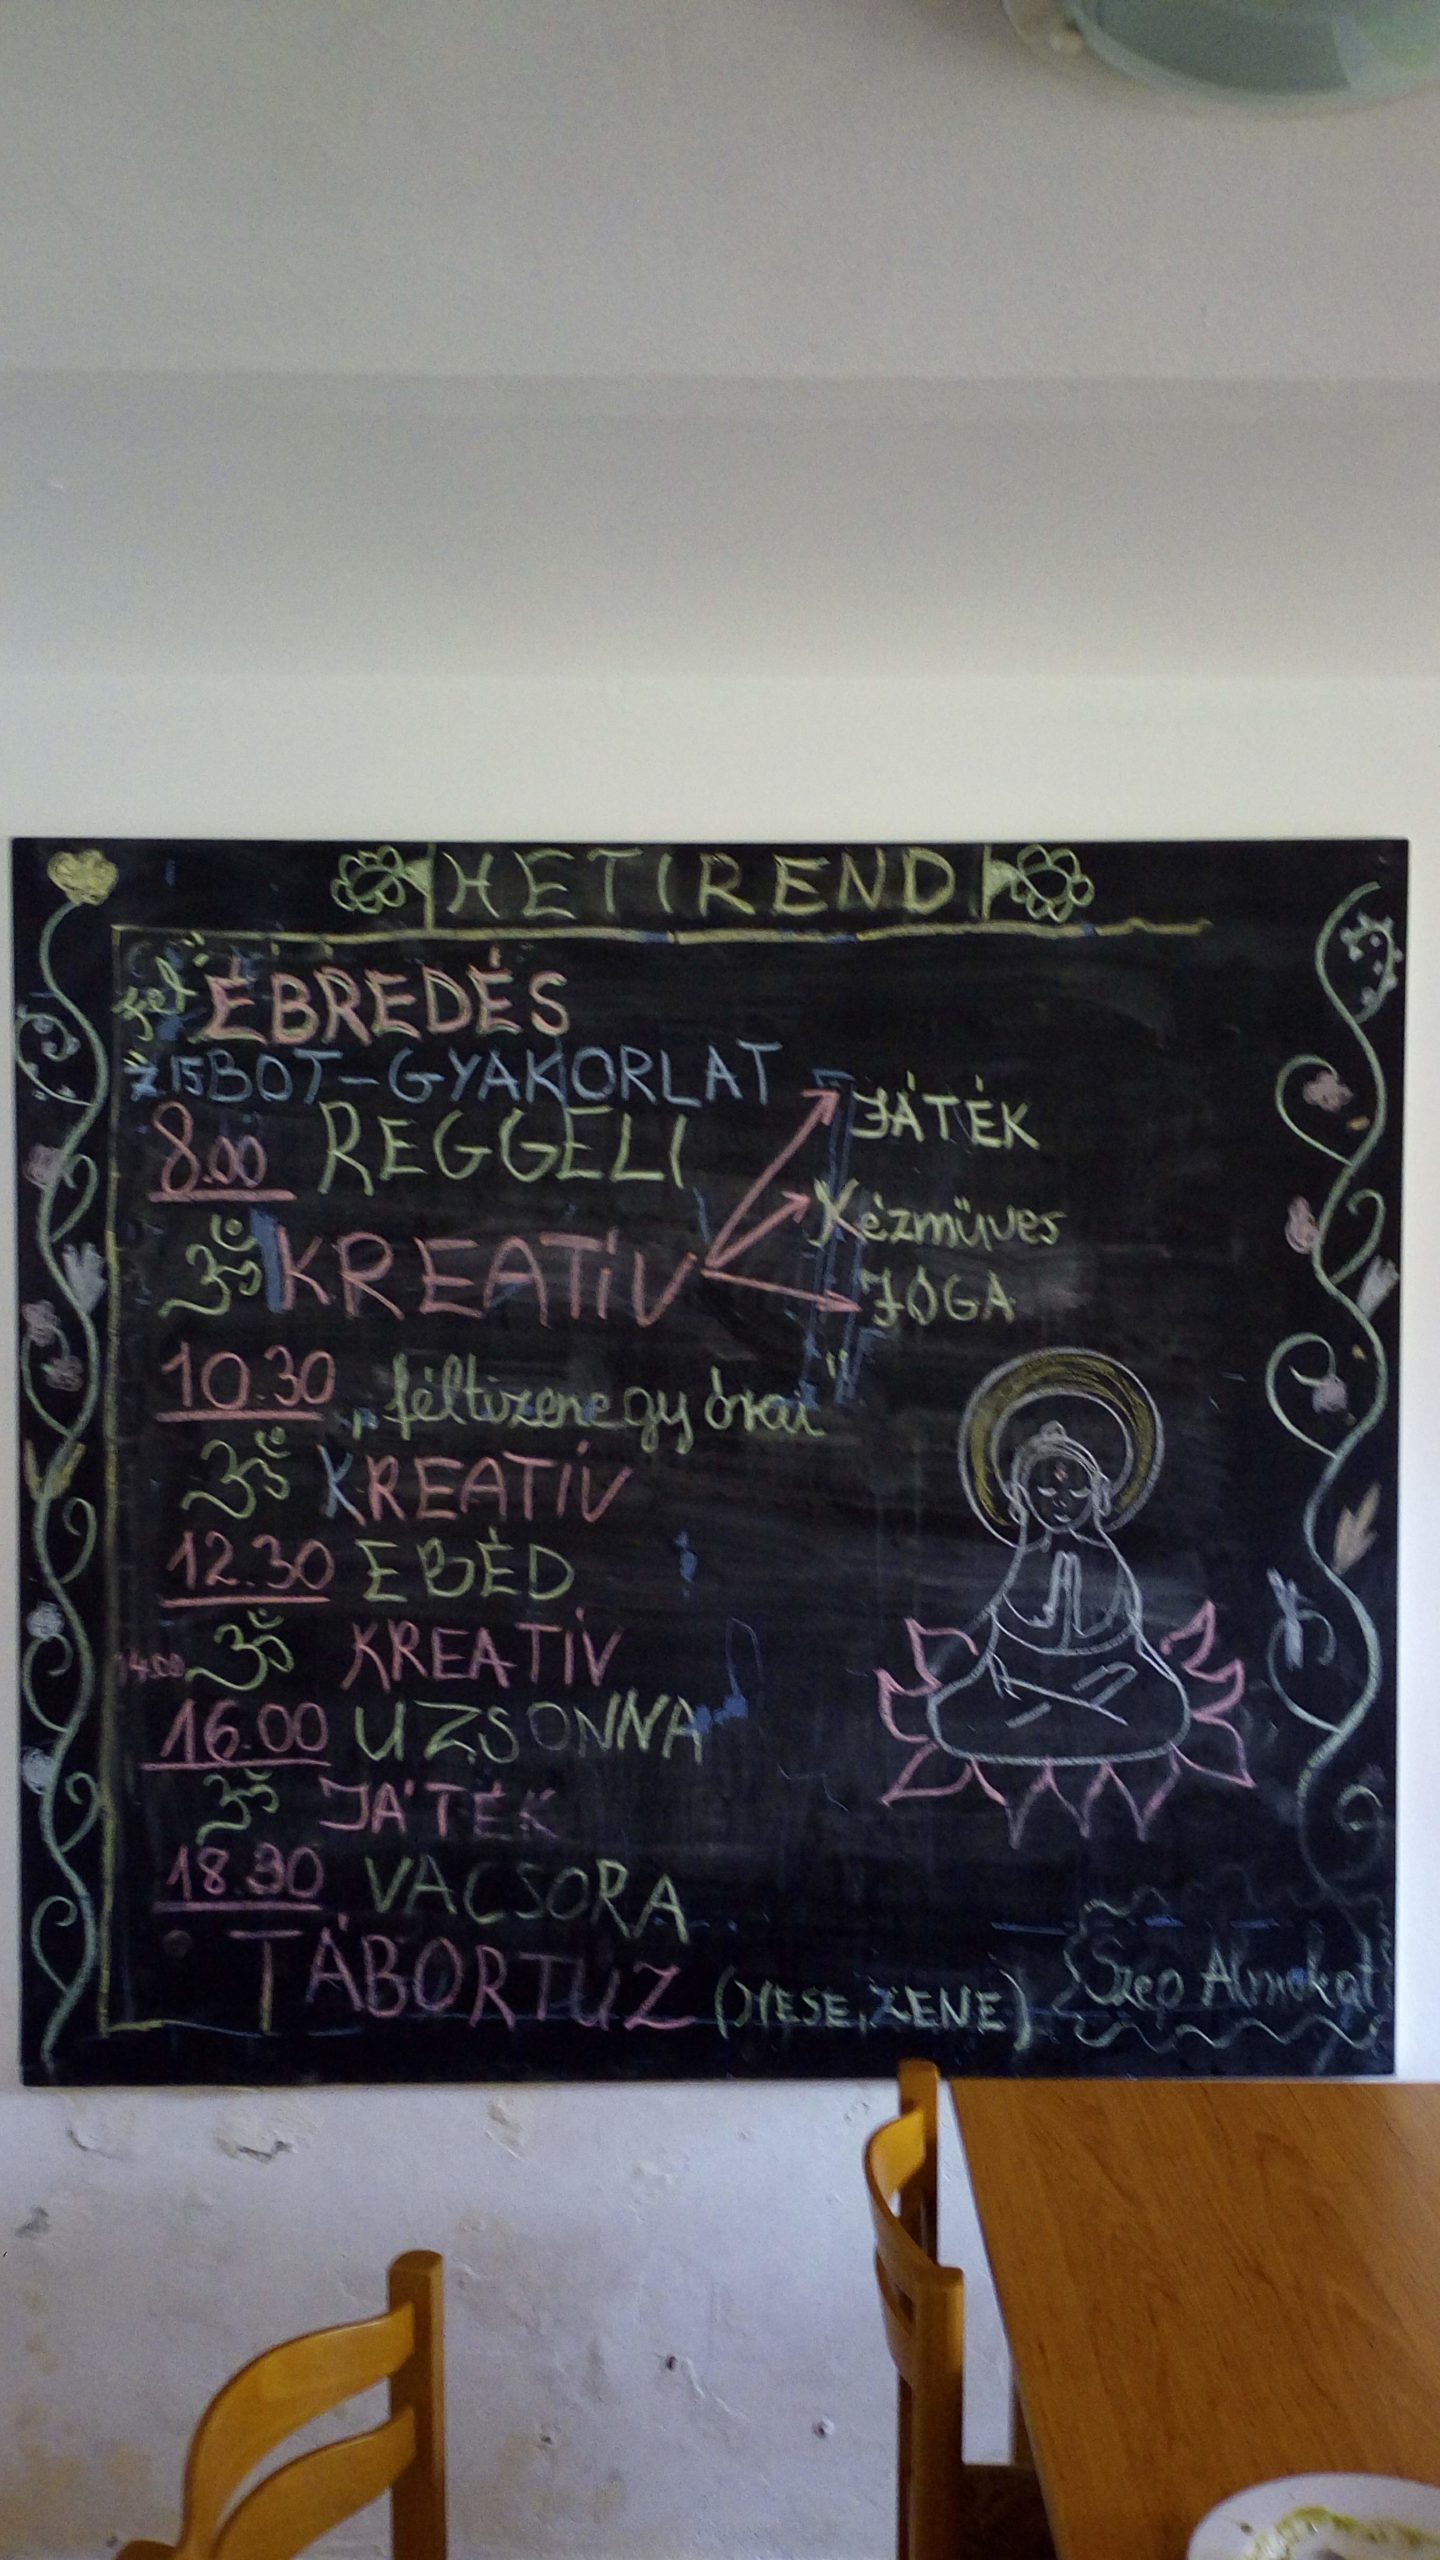 HETIREND
fel ÉBREDÉS
7.15 BOT-GYAKORLAT
8.00 REGGELI
ॐ KREATÍV
JÁTÉK
Kézműves
JÓGA
10.30 „féltizenegy órai"
ॐ KREATÍV
12.30 EBÉD
14.00 ॐ KREATÍV
16.00 UZSONNA
ॐ JÁTÉK
18.30 VACSORA
TÁBORTŰZ (MESE, ZENE)
Szép Álmokat